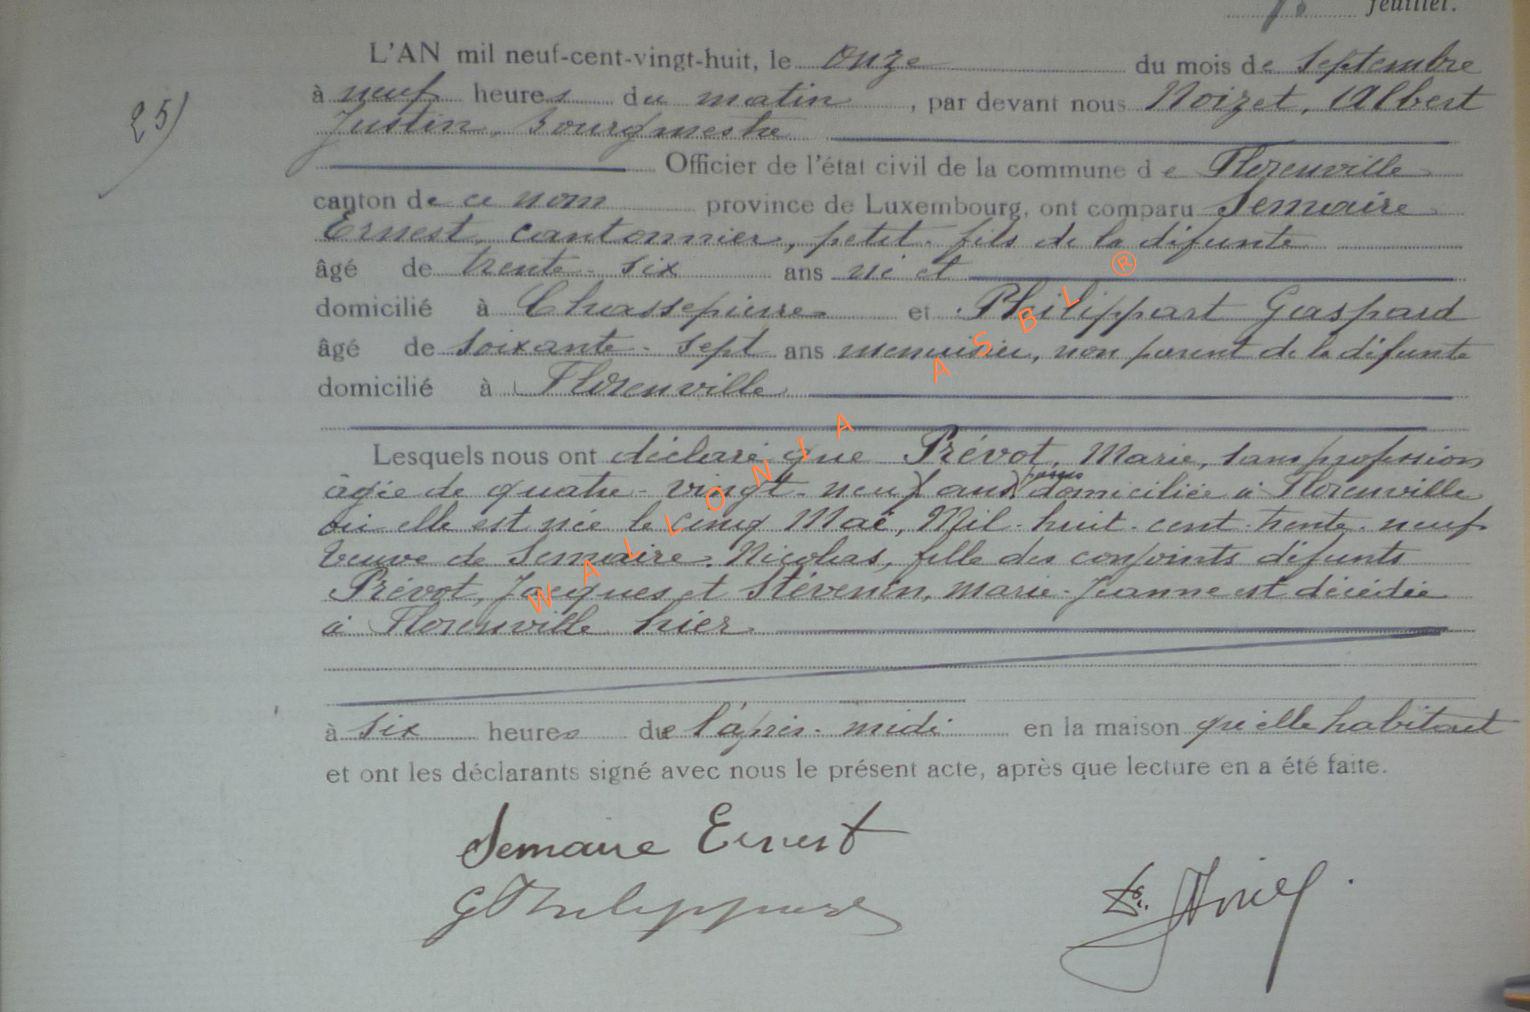 feuillet.
L'AN mil neuf-cent-vingt-huit, le onze du mois de septembre
25)
à neuf heures du matin, par devant nous Noizet, Albert
Justin, Bourgmestre
Officier de l'état civil de la commune de Florenville
canton de ce nom province de Luxembourg, ont comparu Semaire
Ernest, cantonnier, petit-fils de la défunte
âgé de trente-six ans né et
domicilié à Chassepierre et Philippart Gaspard
âgé de soixante-sept ans menuisier, non parent de la défunte
domicilié à Florenville
Lesquels nous ont déclaré que Prévot, Marie, sans profession
âgée de quatre-vingt-neuf ans, domiciliée à Florenville
où elle est née le cinq Mai, Mil-huit-cent-trente-neuf
Veuve de Semaire, Nicolas, fille des conjoints défunts
Prévot, Jacques et Stévenin, Marie-Jeanne est décédée
à Florenville hier
à six heures de l'après-midi en la maison qu'elle habitait
et ont les déclarants signé avec nous le présent acte, après que lecture en a été faite.
Semaire Ernest
G Philippart
WALLONIA ASBL ®